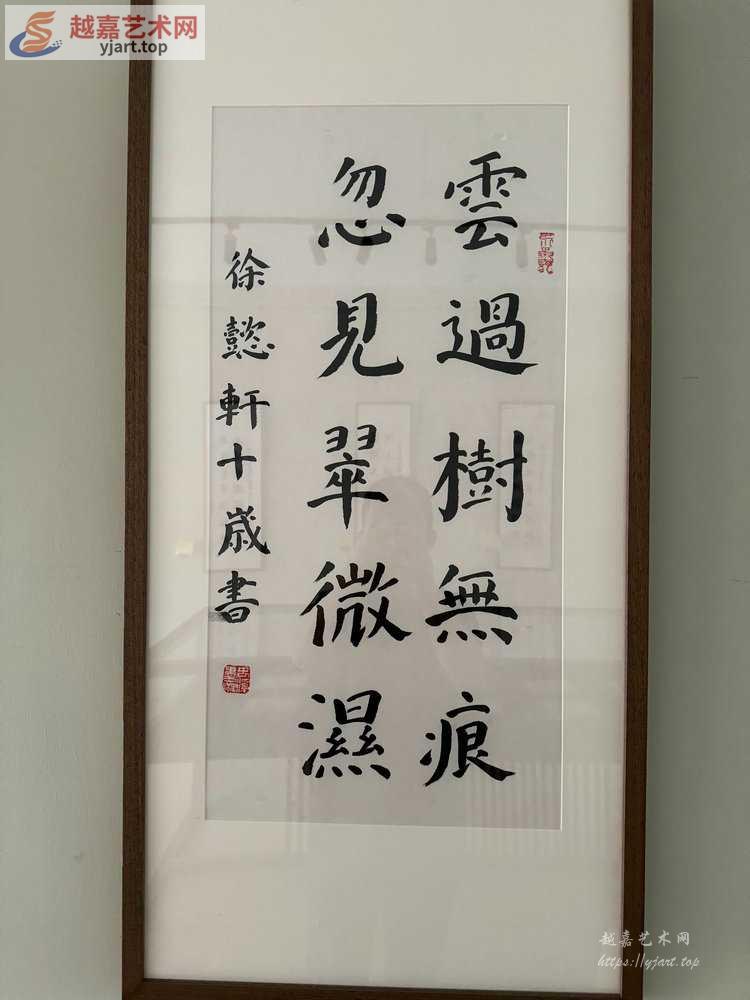 越嘉艺术网
yjart.top
雲過樹無痕
忽見翠微濕
徐懿軒十歲書
越嘉艺术网
https://yjart.top